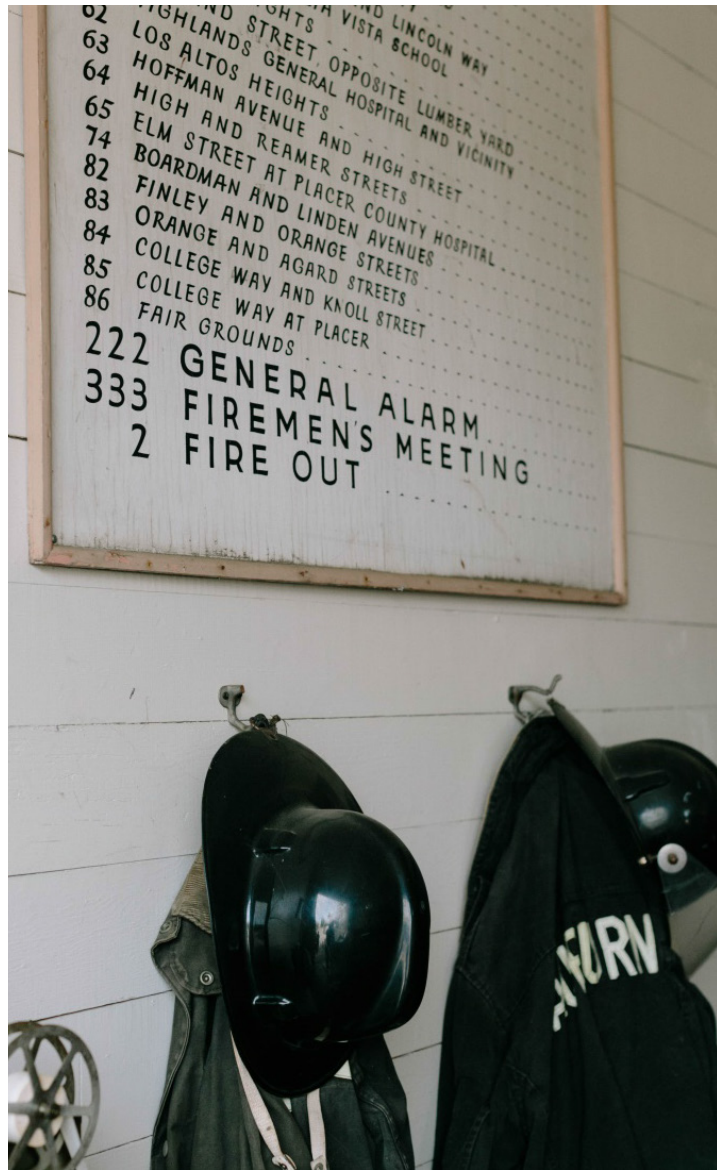 LINCOLN WAY
VISTA SCHOOL
STREET, OPPOSITE LUMBER YARD
HIGHLANDS GENERAL HOSPITAL AND VICINITY
62 LOS ALTOS HEIGHTS
63 HOFFMAN AVENUE AND HIGH STREET
64 HIGH AND REAMER STREETS
65 ELM STREET AT PLACER COUNTY HOSPITAL
74 BOARDMAN AND LINDEN AVENUES
82 FINLEY AND ORANGE STREETS
83 ORANGE AND AGARD STREETS
84 COLLEGE WAY AND KNOLL STREET
85 COLLEGE WAY AT PLACER
86 FAIR GROUNDS
222 GENERAL ALARM
333 FIREMEN'S MEETING
2 FIRE OUT
AUBURN